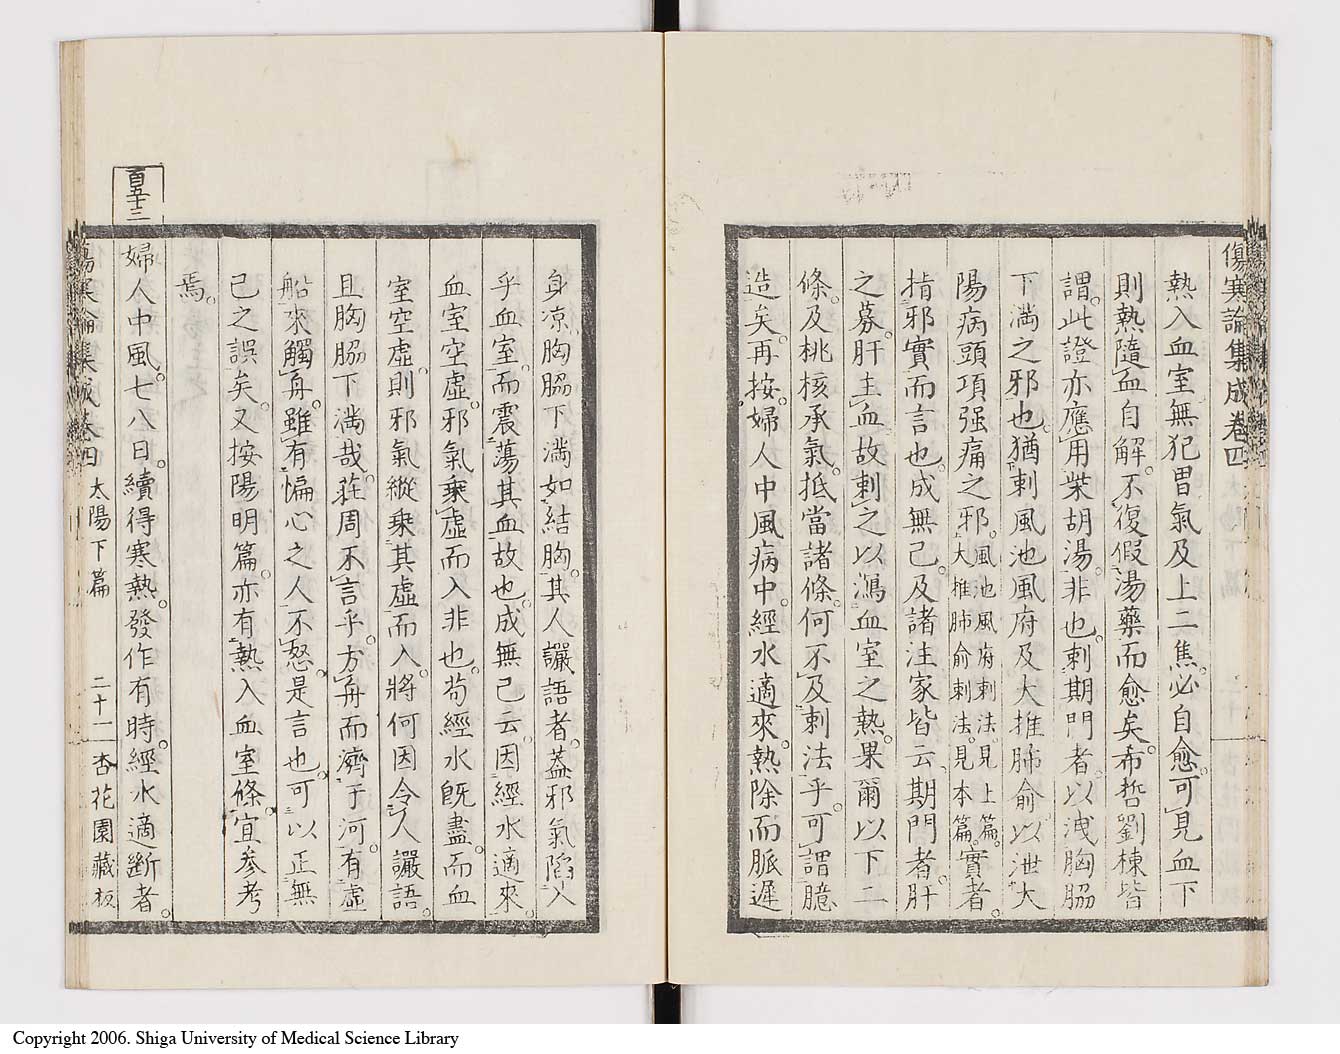 傷寒論集成卷四
熱入血室無犯胃氣及上二焦必自愈可見血下
則熱隨血自解不復假湯藥而愈矣希哲劉棟皆
謂此證亦應用柴胡湯非也刺期門者以洩胸脇
下滿之邪也猶刺風池風府及大椎肺俞以泄大
陽病頭項强痛之邪風池風府刺法見上篇大椎肺俞刺法見本篇實者
指邪實而言也成無己及諸注家皆云期門者肝
之募肝主血故刺之以瀉血室之熱果爾以下二
條及桃核承氣抵當諸條何不及刺法乎可謂臆
造矣再按婦人中風病中經水適來熱除而脈遲
身凉胸脇下滿如結胸其人讝語者蓋邪氣陷入
乎血室而震蕩其血故也成無己云因經水適來
血室空虛邪氣乘虛而入非也苟經水既盡而血
室空虛則邪氣縱乘其虛而入將何因令人讝語
且胸脇下滿哉莊周不言乎方舟而濟于河有虛
船來觸舟雖有惼心之人不怒是言也可以正無
己之誤矣又按陽明篇亦有熱入血室條宜參考
焉
百五十二
婦人中風七八日續得寒熱發作有時經水適斷者
傷寒論集成卷四 太陽下篇 二十二 杏花園藏板
Copyright 2006. Shiga University of Medical Science Library